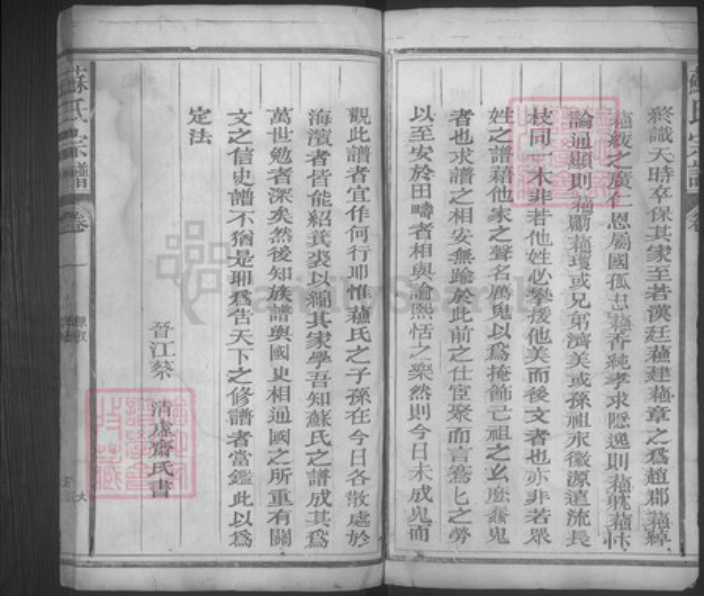 終識天時卒保其家至若漢廷蘇建蘇章之爲趙郡蘇綽
蘇綬之廣仁恩屬國孤忠蘇香純孝求隱逸則蘇耽蘇
論通顯則蘇蘇瓊或兄弟濟美或孫祖永徽源遠流長
枝同一木非若他姓必攀援他美而後文者也亦非若眾
姓之譜藉他家之聲名厲鬼以爲掩飾己祖之幺麽
者也求譜之相安無踰於此前之仕宦聚而言鶱之勞
以至安於田疇者相與論熙恬之樂然則今日未成鬼而
觀此譜者宜作何行耶惟蘇氏之子孫在今日各散處於
海濱者皆能紹箕裘以綿其家學吾知蘇氏之譜成其爲
萬世勉者深矣然後知族譜與國史相通國之所重有關
文之信史譜不猶是耶爲告天下之修譜者當鑑此以爲
定法
晉江蔡 清虛齋氏書
蘇氏宗譜
卷一